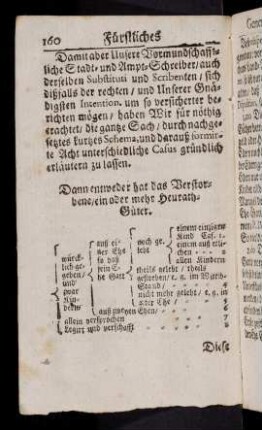 160 Fürstliches
Damit aber Unsere Vormundschafft-
liche Stadt- und Ampt-Schreiber / auch
derselben Substituti und Scribenten / sich
dißfalls der rechten / und Unserer Gnä-
digsten Intention, um so versicherter be-
richten mögen / haben Wir für nöthig
erachtet / die gantze Sach / durch nachge-
setztes kurtzes Schema, und darauf formir-
te Acht unterschiedliche Casus gründlich
erläutern zu lassen.
Dann entweder hat das Verstor-
bene / ein oder mehr Heurath-
Güter.
würck-
lich ge-
geben /
und
zwar
Kin-
dern
auß ei-
ner Ehe
so daß
sein E-
he Gatt
noch ge-
lebt /
einem einzigen
Kind Cas. 1
einem auß etli-
chen 2
allen Kindern 3
theils gelebt / theils
gestorben / e. g. im Wittib-
Stand / 4
nicht mehr gelebt / e. g. in
ander Ehe / 5
auß zweyen Ehen / 6
allein versprochen 7
Legirt und verschafft 8
Diese